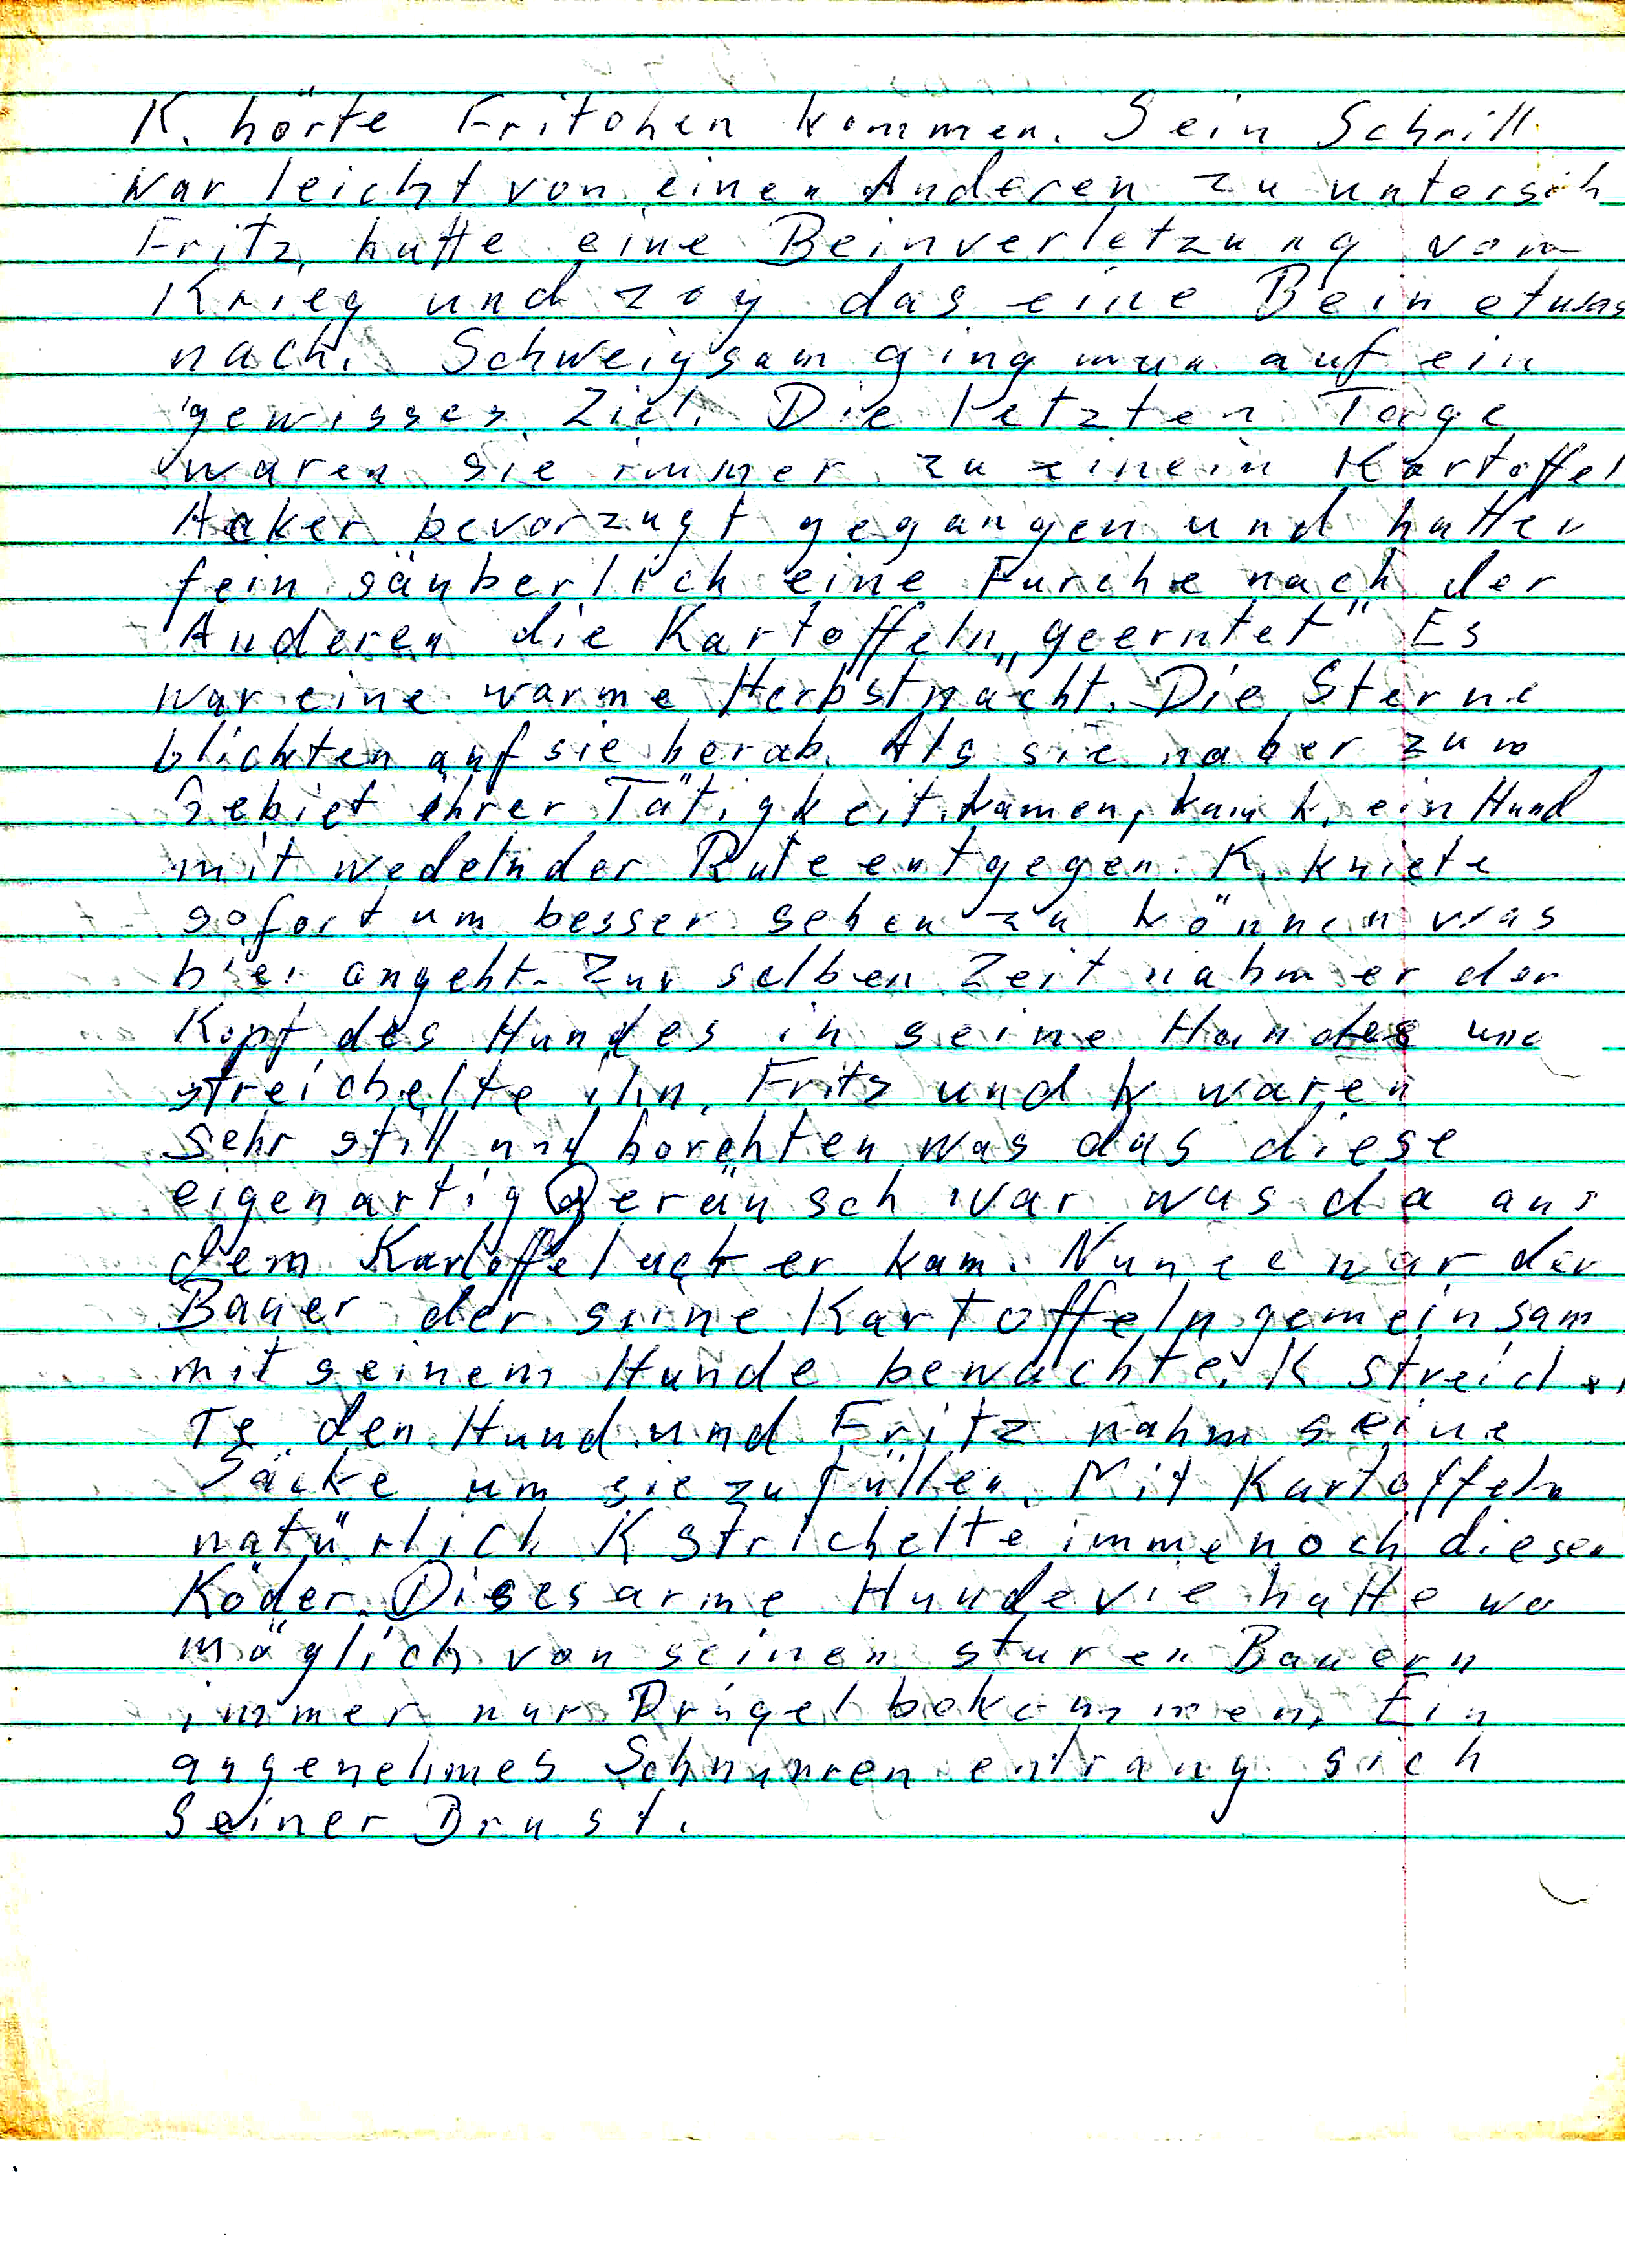 K. hörte Fritchen kommen. Sein Schritt
war leicht von einen Anderen zu untersch
Fritz, hatte eine Beinverletzung vom
Krieg und zog das eine Bein etwas
nach. Schweigsam ging man auf ein
gewisses Ziel. Die letzten Tage
waren sie immer zu einem Kartoffel
Acker bevorzugt gegangen und hatten
fein säuberlich eine Furche nach der
Anderen die Kartoffeln „geerntet" Es
war eine warme Herbstnacht. Die Sterne
blickten auf sie herab. Als sie naher zum
Gebiet ihrer Tätigkeit kamen, kam K. ein Hund
mit wedelnder Rute entgegen. K. kniete
sofort um besser sehen zu können was
hier angeht. Zur selben Zeit nahm er der
Kopf des Hundes in seine Handes und
streichelte ihn. Fritz und K waren
sehr still und horchten was das diese
eigenartig Geräusch war was da aus
dem Kartoffelacker kam. Nun ee war der
Bauer der seine Kartoffeln gemeinsam
mit seinem Hunde bewachte. K streichel
Te den Hund und Fritz nahm seine
Säcke um sie zu füllen. Mit Kartoffeln
natürlich K strichelte immenoch diesen
Köder. Dieses arme Hundevie hatte wo
möglich von seinen sturen Bauern
immer nur Prügel bekommen. Ein
angenehmes Schnurren entrang sich
seiner Brust.